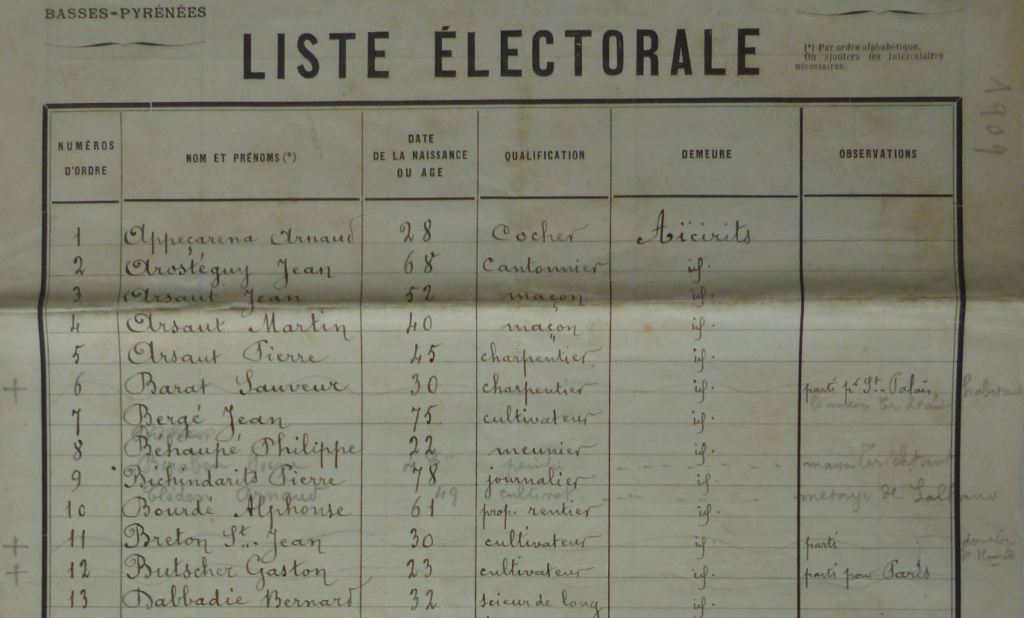 BASSES-PYRÉNÉES
LISTE ÉLECTORALE
(*) Par ordre alphabétique.
On ajoutera les intercalaires
nécessaires.
1909
NUMÉROS D'ORDRE NOM ET PRÉNOMS (*) DATE DE LA NAISSANCE OU AGE QUALIFICATION DEMEURE OBSERVATIONS
1 Appeçarena Arnaud 28 Cocher Aïcirits
2 Arostéguy Jean 68 Cantonnier id.
3 Arsaut Jean 52 maçon id.
4 Arsaut Martin 40 maçon id.
5 Arsaut Pierre 45 charpentier id.
+ 6 Barat Sauveur 30 charpentier id. parti pr St-Palais,
7 Bergé Jean 75 cultivateur id.
8 Béhaupé Philippe 22 meunier id.
maison
9 Bichindarits Pierre 78 journalier id.
Arnaud 49 cultivat. métayer de
10 Bourdé Alphonse 61 prop. rentier id.
+ 11 Breton St-Jean 30 cultivateur id. parti
+ 12 Butscher Gaston 23 cultivateur id. parti pour Paris
13 Dabbadie Bernard 32 scieur de long id.